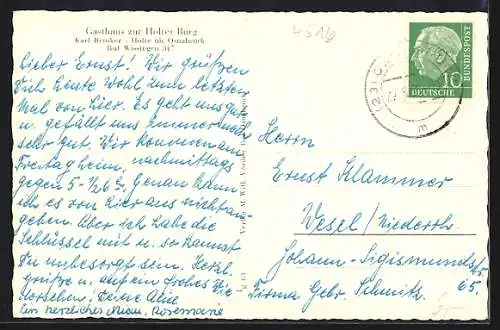 Gasthaus zur Holter Burg
Karl Brinker · Holte üb. Osnabrück
Ruf Wissingen 347
Lieber Ernst! Wir grüßen
Dich heute wohl zum letzten
Mal von hier. Es geht uns gut
u. gefällt uns immer noch
sehr gut. Wir kommen am
Freitag heim, nachmittags
gegen 5-1/2 6 Genau kann
ich es von hier aus nicht an
geben. Aber ich habe die
Schlüssel mit u. so kannst
Du unbesorgt sein. Herzl.
grüße u. auf ein frohes Wie
dersehen! Deine Alie
Ein herzliches Miau, Rosemarie
4516
DEUTSCHE
BUNDESPOST
10
Herrn
Ernst Klammer
Wesel / Niederrh.
Johann-Sigismundstr.
65
Firma Gebr. Schmitz.